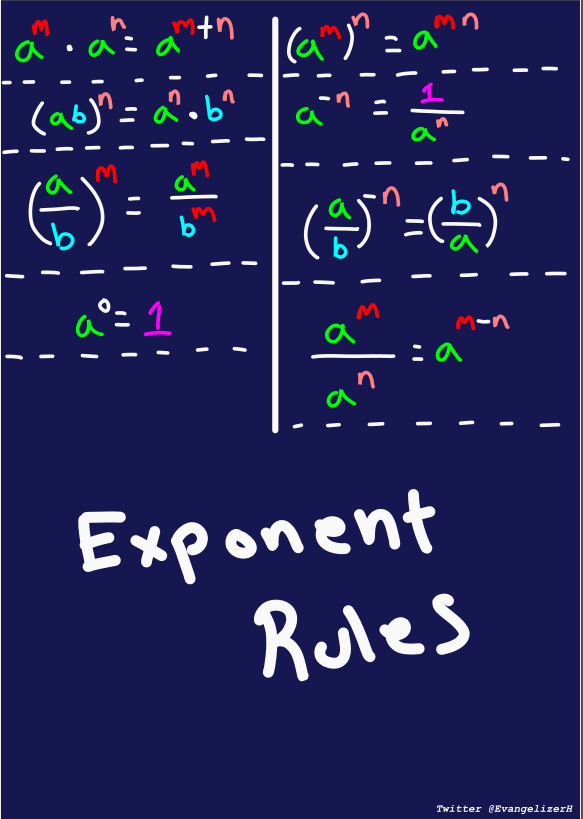 aᵐ · aⁿ = aᵐ⁺ⁿ
(ab)ⁿ = aⁿ · bⁿ
(a/b)ᵐ = aᵐ/bᵐ
a⁰ = 1
(aᵐ)ⁿ = aᵐⁿ
a⁻ⁿ = 1/aⁿ
(a/b)⁻ⁿ = (b/a)ⁿ
aᵐ/aⁿ = aᵐ⁻ⁿ
Exponent
Rules
Twitter @EvangelizerH